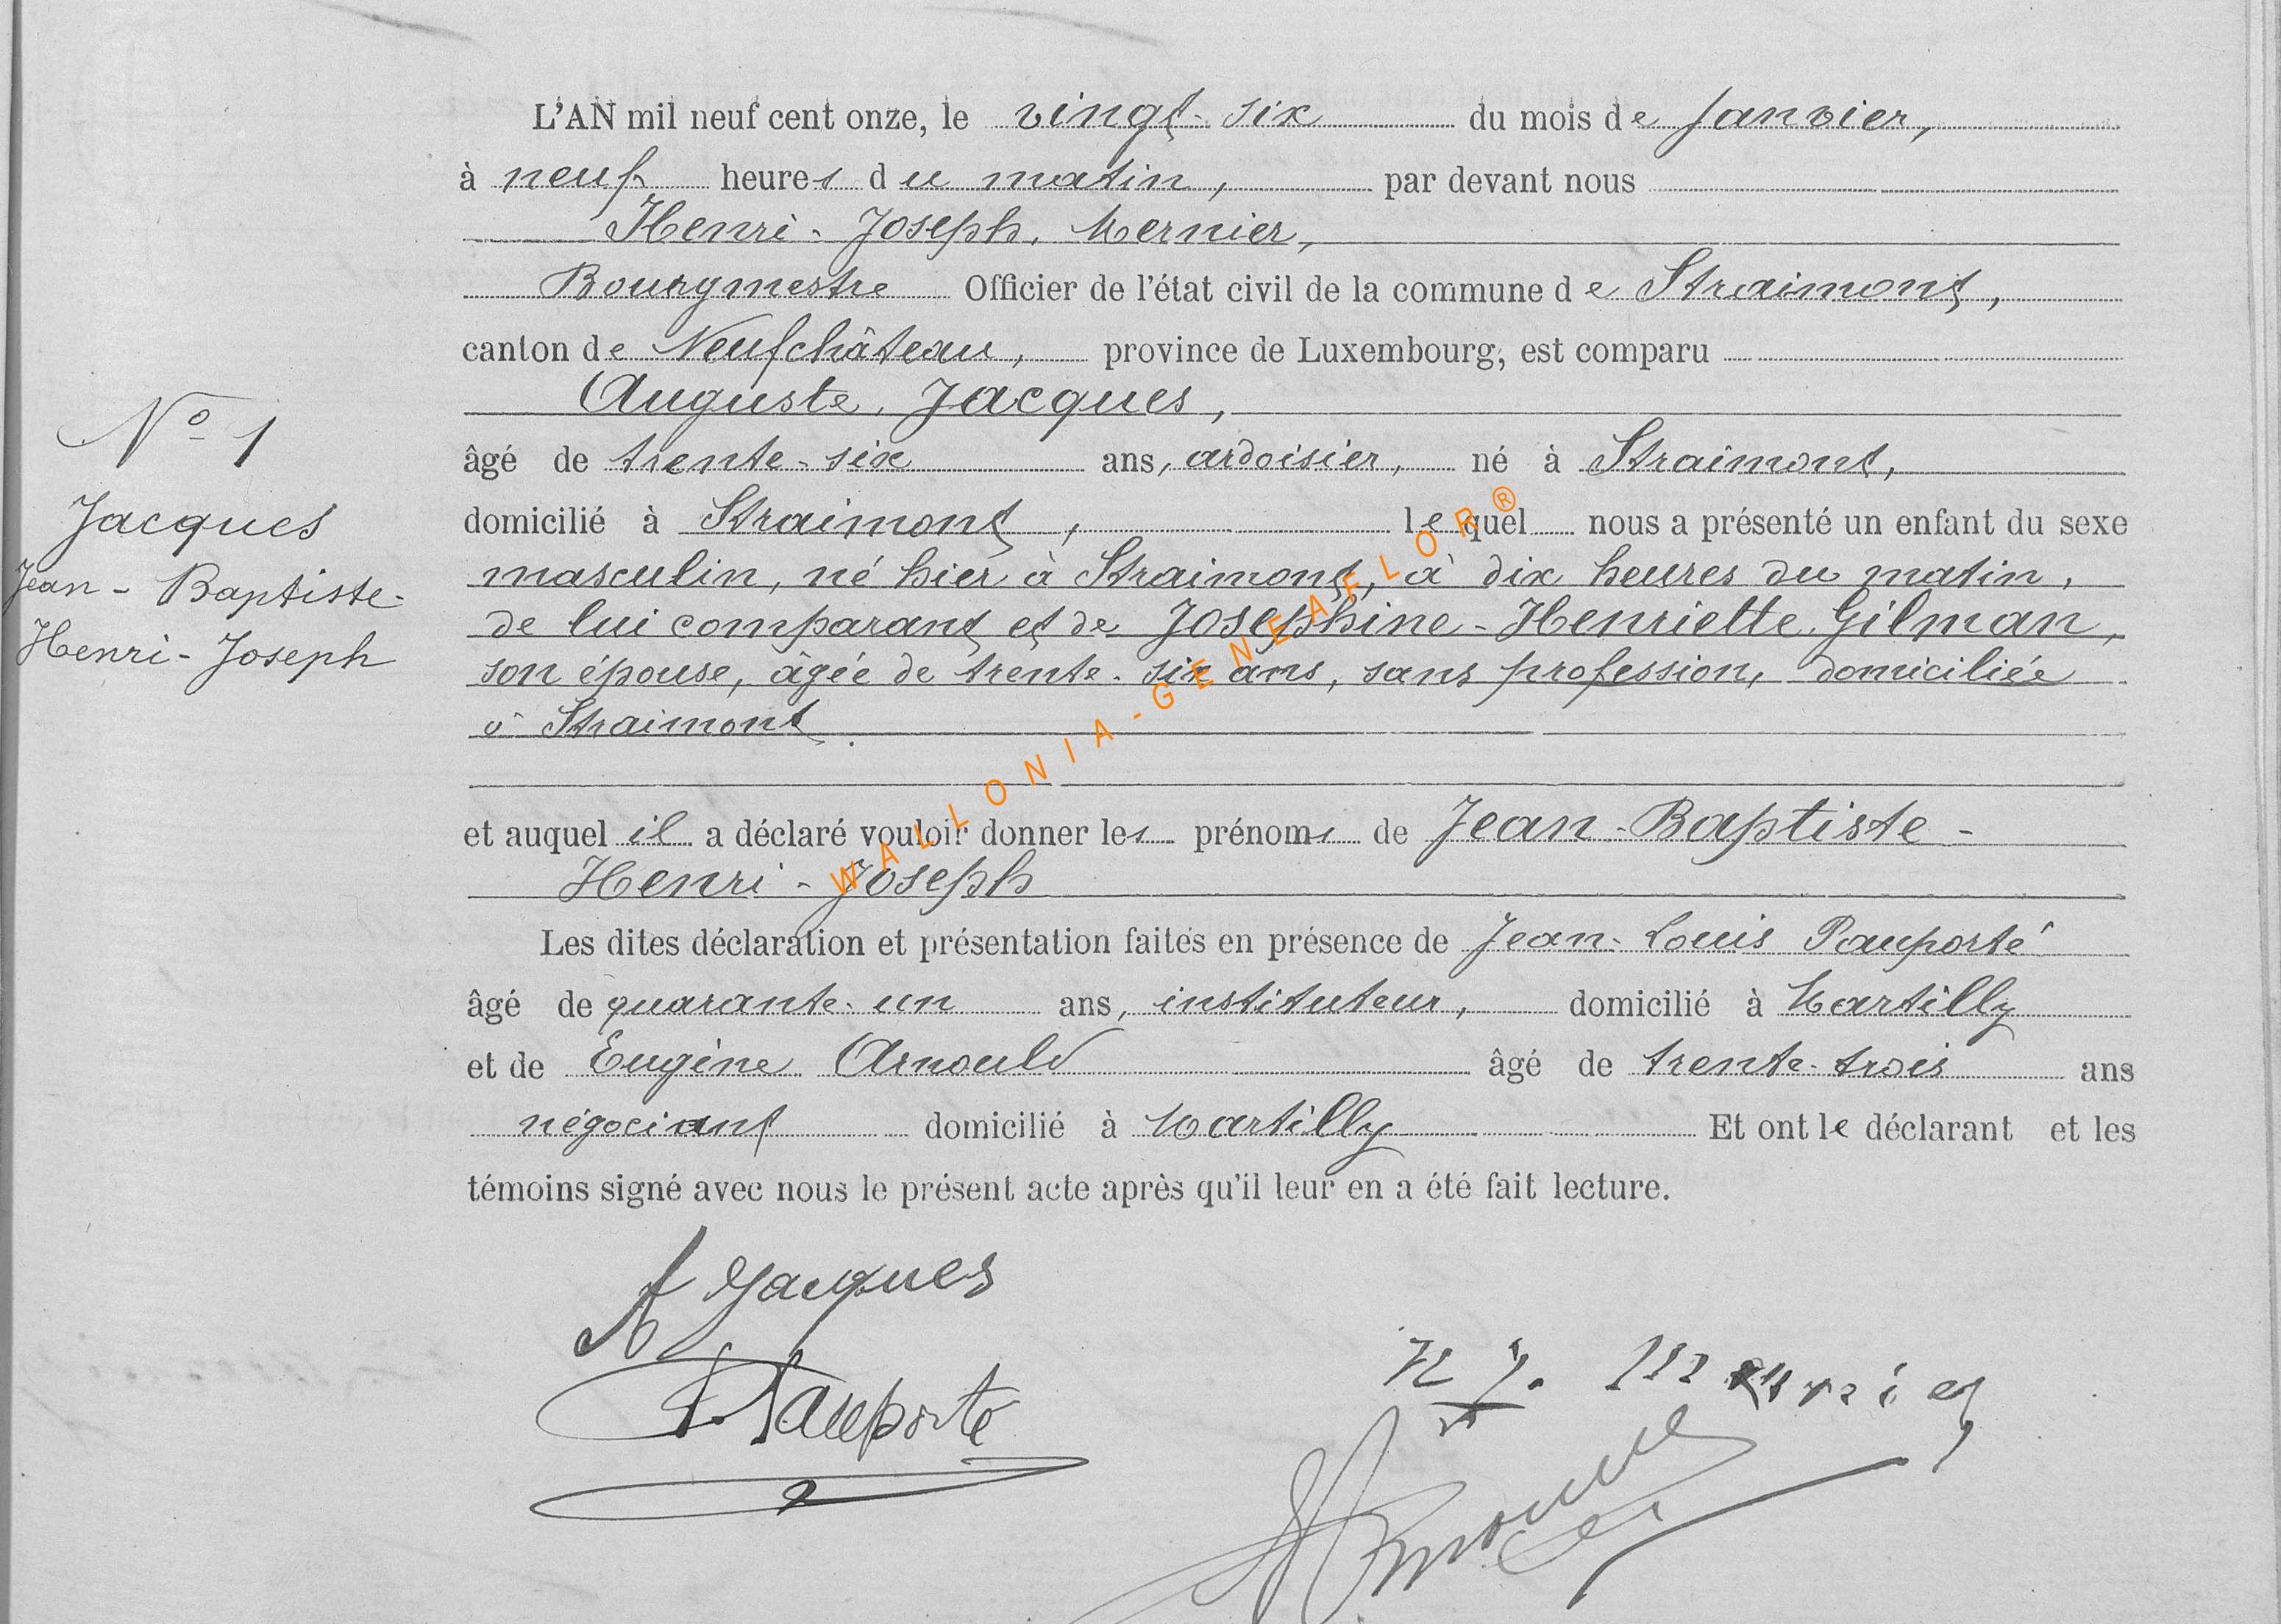 L'AN mil neuf cent onze, le vingt-six du mois de Janvier,
à neuf heures du matin, par devant nous
Henri-Joseph, Mernier,
Bourgmestre Officier de l'état civil de la commune de Straimont,
canton de Neufchâteau, province de Luxembourg, est comparu
Auguste, Jacques,
âgé de trente-six ans, ardoisier, né à Straimont,
domicilié à Straimont, lequel nous a présenté un enfant du sexe
masculin, né hier à Straimont, à dix heures du matin,
de lui comparant et de Joséphine-Henriette Gilman,
son épouse, âgée de trente-six ans, sans profession, domiciliée
à Straimont.
et auquel il a déclaré vouloir donner les prénoms de Jean-Baptiste-
Henri-Joseph
Les dites déclaration et présentation faites en présence de Jean-Louis Pauporté
âgé de quarante-un ans, instituteur, domicilié à Martilly
et de Eugène Arnould âgé de trente-trois ans
négociant domicilié à Martilly Et ont le déclarant et les
témoins signé avec nous le présent acte après qu'il leur en a été fait lecture.
No 1
Jacques
Jean-Baptiste-
Henri-Joseph
A Jacques
Pauporté
H J. Mernier
WALLONIA-GENEAFLOR®